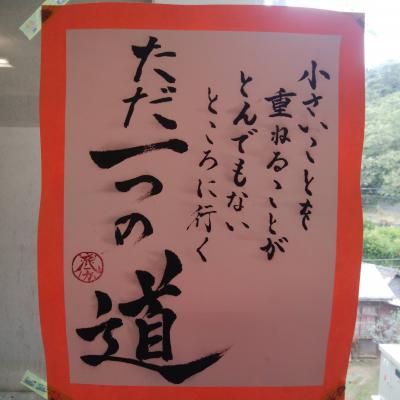 小さいことを
重ねることが
とんでもない
ところに行く
ただ一つの
道